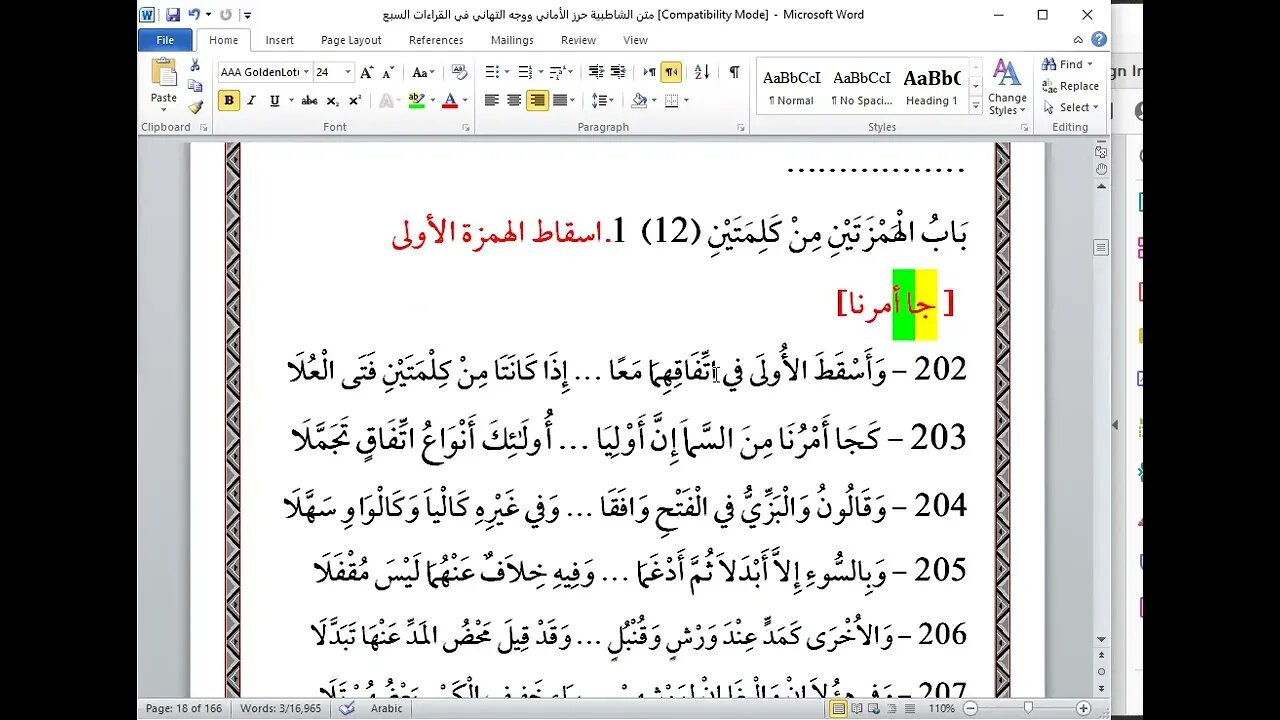 متن الشاطبية حرز الأماني ووجه التهاني في القراءات السبع [Compatibility Mode] - Microsoft Word
File Home Insert Page Layout References Mailings Review View
Paste
AAA GoldenLot 24
AaBbCcI AaBbCcI AaBbC
¶ Normal ¶ No Spaci... Heading 1
Change Styles
Find
Replace
Select
Clipboard Font Paragraph Styles Editing
.................
بَابُ الْهَمْزَتَيْنِ مِنْ كَلِمَتَيْنِ (12) 1.اسقاط الهمزة الأولى
[ جا أمرنا]
202 – وَأَسْقَطَ الأُولَى في اتِّفَاقِهِمَا مَعًا ... إِذَا كَانَتَا مِنْ كِلْمَتَيْنِ فَتَى الْعُلَا
203 – كَجَا أَمْرُنَا مِنَ السَّمَا إِنَّ أَوْلِيَا ... أُولَئِكَ أَنْوَاعُ اتِّفَاقٍ تَجَمَّلَا
204 – وَقَالُونُ وَالْبَزِّيُّ في الْفَتْحِ وَافَقَا ... وَفي غَيْرِهِ كَالْيَا وَكَالْوَاوِ سَهَّلَا
205 – وَبِالسُّوءِ إِلاَّ أَبْدَلاَ ثُمَّ أَدْغَمَا ... وَفِيهِ خِلاَفٌ عَنْهُمَا لَيْسَ مُقْفَلَا
206 – وَالأُخْرَى كَمَدٍّ عِنْدَ وَرْشٍ وَقُنْبُلٍ ... وَقَدْ قِيلَ مَحْضُ المَدِّ عَنْهَا تَبَدَّلَا
207
Page: 18 of 166 Words: 3/16,965 Arabic 110%